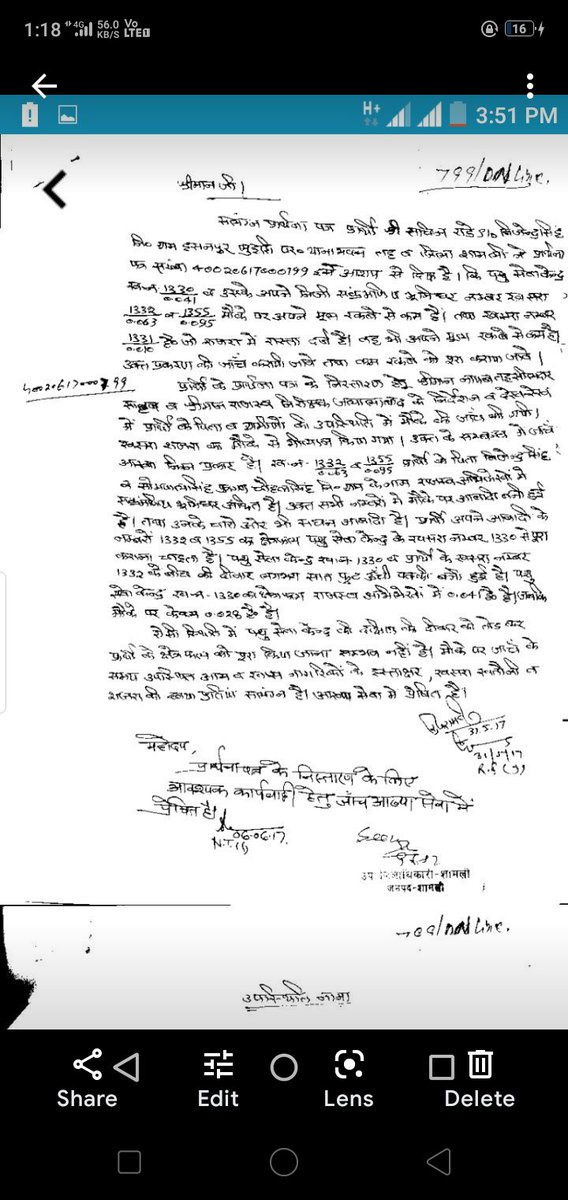 1:18 4G 56.0 KB/S Vo LTE 16
H+ 3:51 PM
799/ONLine.
श्रीमान जी।
संलग्न प्रार्थना पत्र प्रार्थी श्री सचिन राठे S/O विजेन्द्र सिंह
नि० ग्राम हसनपुर लुहारी पर० थानाभवन तह० व जिला शामली ने प्रार्थना
पत्र संख्या 40020617000199 इस आशय से दिया है। कि पशु सेवा केन्द्र
ख०न० 1330/0.041 व उसके अपने निजी संक्रमणीय भूमिधर नम्बर खसरा
1332/0.063 व 1355/0.095 मौके पर अपने मूल रकबे से कम है। तथा खसरा नम्बर
1331/0.010 है० जो शजरा में रास्ता दर्ज है। वह भी अपने मूल रकबे से कम है।
उक्त प्रकरण की जाँच करायी जावे तथा कम रकबे को पूरा कराया जावे।
40020617000199
प्रार्थी के प्रार्थना पत्र के निस्तारण हेतु श्रीमान नायब तहसीलदार
व श्रीमान राजस्व निरीक्षक के निर्देशन व देखरेख
में प्रार्थी के पिता व ग्रामीणों की उपस्थिति में मौके की जाँच की गयी।
खसरा शजरा का मौके से मिलान किया गया। उक्त के सम्बन्ध में जाँच
आख्या निम्न प्रकार है। ख०न० 1332/0.063 व 1355/0.095 प्रार्थी के पिता विजेन्द्र सिंह
नि० ग्राम के नाम राजस्व अभिलेखों में
संक्रमणीय भूमिधर अंकित है। उक्त सभी नम्बरों में मौके पर आबादी बनी हुई
है। तथा उनके चारो ओर भी सघन आबादी है। प्रार्थी अपने आबादी के
नम्बरों 1332 व 1355 का क्षेत्रफल पशु सेवा केन्द्र के खसरा नम्बर 1330 से पूरा
कराना चाहता है। पशु सेवा केन्द्र ख०न० 1330 व प्रार्थी के खसरा नम्बर
1332 के बीच की दीवार लगभग सात फुट ऊँची पक्की बनी हुई है। पशु
सेवा केन्द्र ख०न० 1330 का क्षेत्रफल राजस्व अभिलेखों में 0.041 है० है। जबकि
मौके पर केवल 0.028 है० है।
ऐसी स्थिति में पशु सेवा केन्द्र की दक्षिण की दीवार को तोड कर
प्रार्थी के क्षेत्रफल को पूरा किया जाना सम्भव नहीं है। मौके पर जाँच के
समय उपस्थित नागरिकों के हस्ताक्षर, खसरा खतौनी व
शजरा की छाया प्रतियां संलग्न है। आख्या सेवा में प्रेषित है।
31.5.17
31/5/17
महोदय,
प्रार्थना पत्र के निस्तारण के लिए
आवश्यक कार्यवाही हेतु जाँच आख्या सेवा में
प्रेषित है।
06.06.17
उप जिलाधिकारी-शामली
जनपद-शामली
ONLine.
उपस्थिति नामा
Share
Edit
Lens
Delete